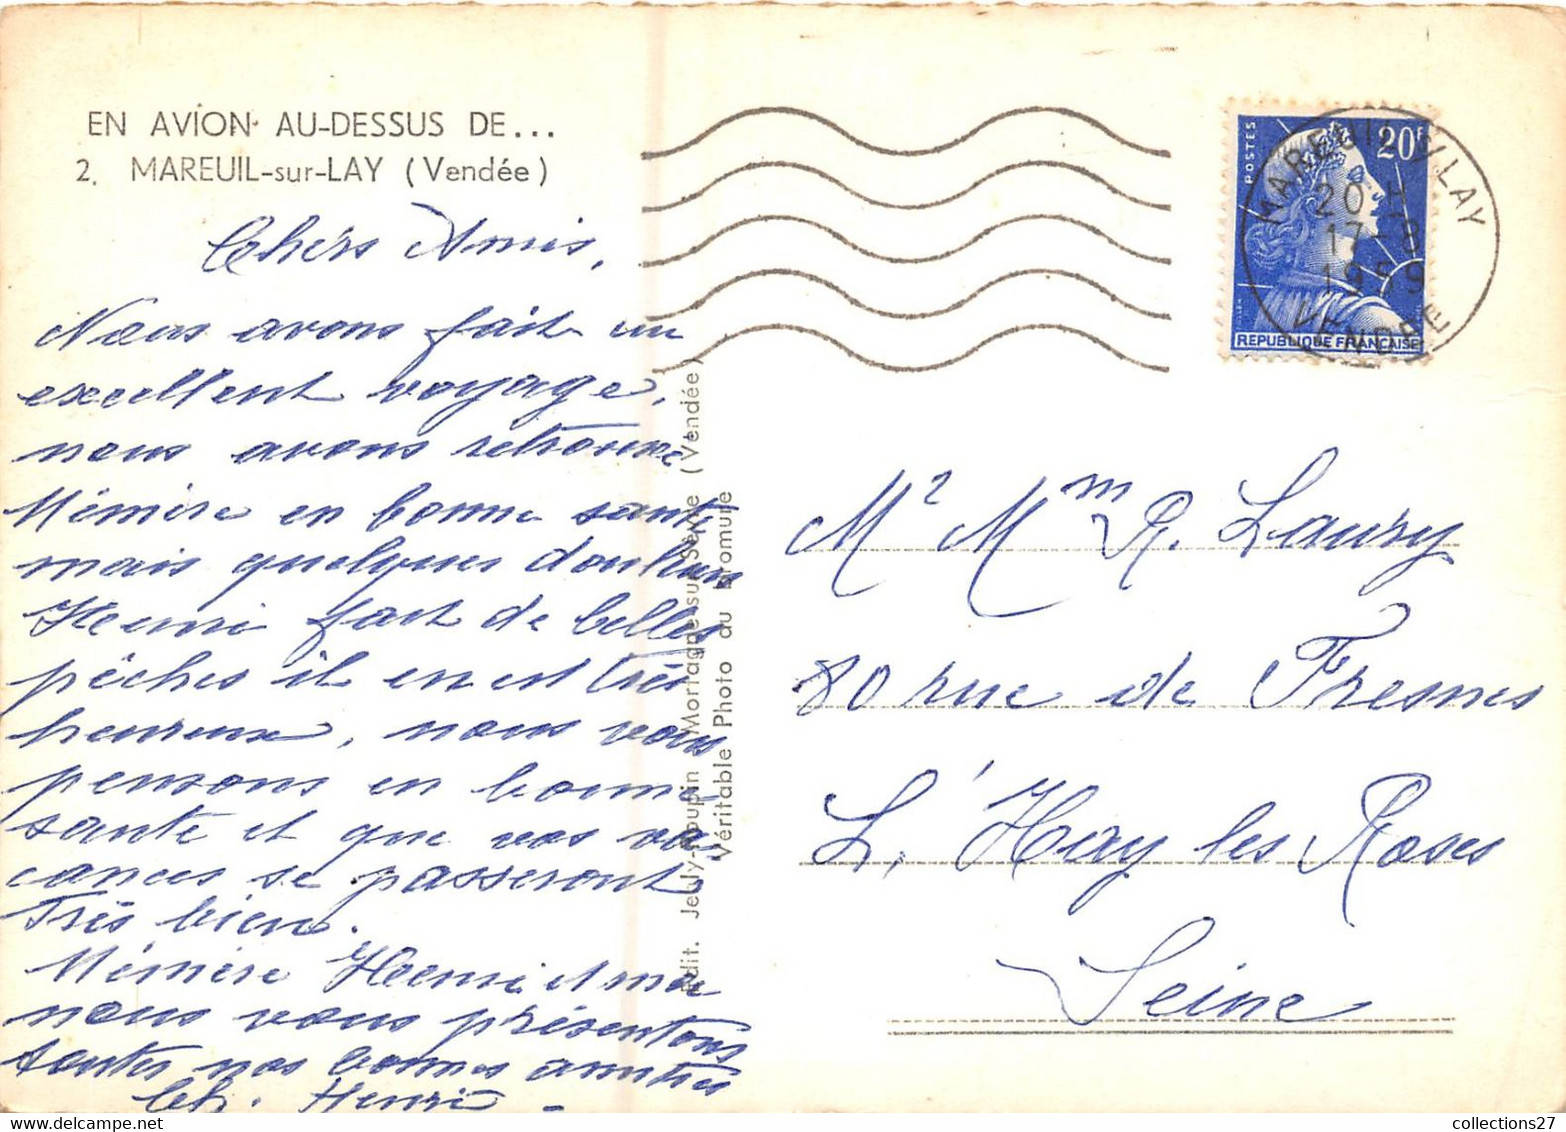 EN AVION AU-DESSUS DE...
2. MAREUIL-sur-LAY (Vendée)
Chers Amis,
Nous avons fait un
excellent voyage,
nous avons retrouvé
Mémère en bonne santé
mais quelques douleurs
Henri fait de belles
pêches il en est très
heureux, nous vous
pensons en bonne
santé et que vos va
cances se passeront
Très bien.
Mémère Henri et moi
nous vous présentons
toutes nos bonnes amitiés
Ch. Henri
Edit. Jehly-Poupin Mortagne-sur-Sèvre (Vendée)
Véritable Photo au Bromure
POSTES
20F
REPUBLIQUE FRANÇAISE
MAREUIL S/LAY
20 H
17-8
1959
VENDEE
Mr Mm R. Laury
80 rue de Fresnes
L'Hay les Roses
Seine
collections27